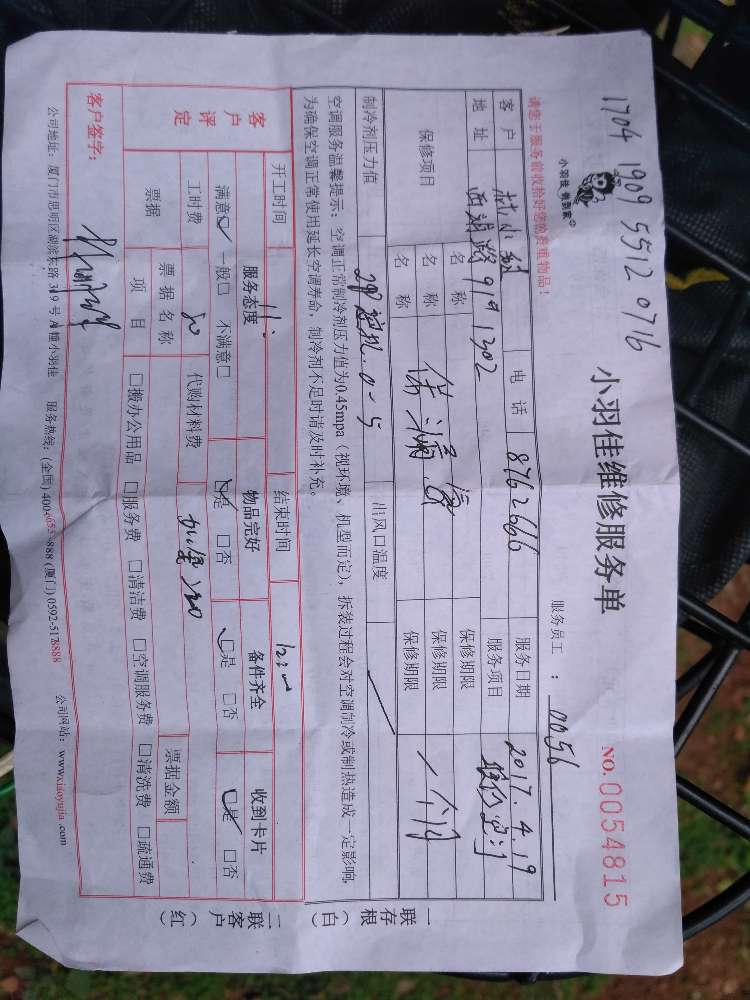 1704 1909 5512 0716
小羽佳 帮到家
小羽佳维修服务单
服务员工 : 0056
NO.0054815
请您于服务前收拾好您的贵重物品！
客户 电话 8762666 服务日期 2017.4.19
地址 西湖路 1302 服务项目
保修项目 名称 保修期限
名称 保修期限 一个月
名称 保修期限
制冷剂压力值 出风口温度
空调服务温馨提示：空调正常制冷剂压力值为0.45mpa（视环境、机型而定），拆装过程会对空调制冷或制热造成一定影响，
为确保空调正常使用延长空调寿命，制冷剂不足时请及时补充。
开工时间 11: 结束时间
客户评定 服务态度 物品完好 备件齐全 收到卡片
满意□ 一般□ 不满意□ □是 □否 □是 □否 □是 □否
工时费 代购材料费
票据 票据名称 票据金额
项目 □搬办公用品 □服务费 □清洁费 □空调服务费 □清洗费 □疏通费
客户签字：
公司地址：厦门市思明区湖滨东路319号A幢小羽佳 服务热线：(全国) 400-653-888 (厦门) 0592-5178888 公司网站：www.xiaoyujia.com
一联存根（白）
二联客户（红）